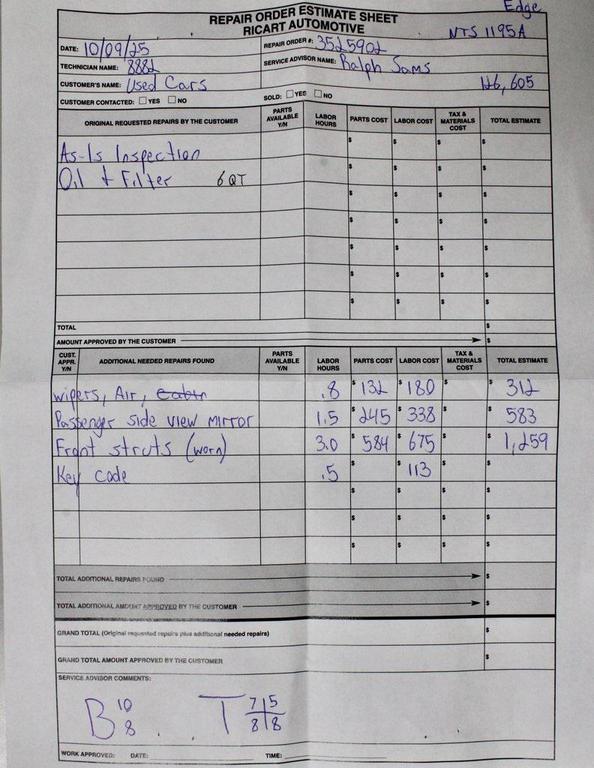 Edge
REPAIR ORDER ESTIMATE SHEET
RICART AUTOMOTIVE
NTS 1195A
DATE: 10/09/25 REPAIR ORDER #: 3525902
TECHNICIAN NAME: 8882 SERVICE ADVISOR NAME: Ralph Sams
CUSTOMER'S NAME: Used Cars 126,605
CUSTOMER CONTACTED: ☐ YES ☐ NO SOLD: ☐ YES ☐ NO
ORIGINAL REQUESTED REPAIRS BY THE CUSTOMER PARTS AVAILABLE Y/N LABOR HOURS PARTS COST LABOR COST TAX & MATERIALS COST TOTAL ESTIMATE
As-Is Inspection $ $ $ $
Oil + Filter 6 QT $ $ $ $
$ $ $ $
$ $ $ $
$ $ $ $
$ $ $ $
$ $ $ $
TOTAL $
AMOUNT APPROVED BY THE CUSTOMER $
CUST. APPR. Y/N ADDITIONAL NEEDED REPAIRS FOUND PARTS AVAILABLE Y/N LABOR HOURS PARTS COST LABOR COST TAX & MATERIALS COST TOTAL ESTIMATE
wipers, Air, Cabin .8 $ 132 $ 180 $ $ 312
Passenger side view mirror 1.5 $ 245 $ 338 $ $ 583
Front struts (worn) 3.0 $ 584 $ 675 $ $ 1,259
Key code .5 $ $ 113 $ $
$ $ $ $
$ $ $ $
$ $ $ $
TOTAL ADDITIONAL REPAIRS FOUND $
TOTAL ADDITIONAL AMOUNT APPROVED BY THE CUSTOMER $
GRAND TOTAL (Original requested repairs plus additional needed repairs) $
GRAND TOTAL AMOUNT APPROVED BY THE CUSTOMER $
SERVICE ADVISOR COMMENTS:
B 10 8 T 7 5 8 8
WORK APPROVED: DATE: TIME: